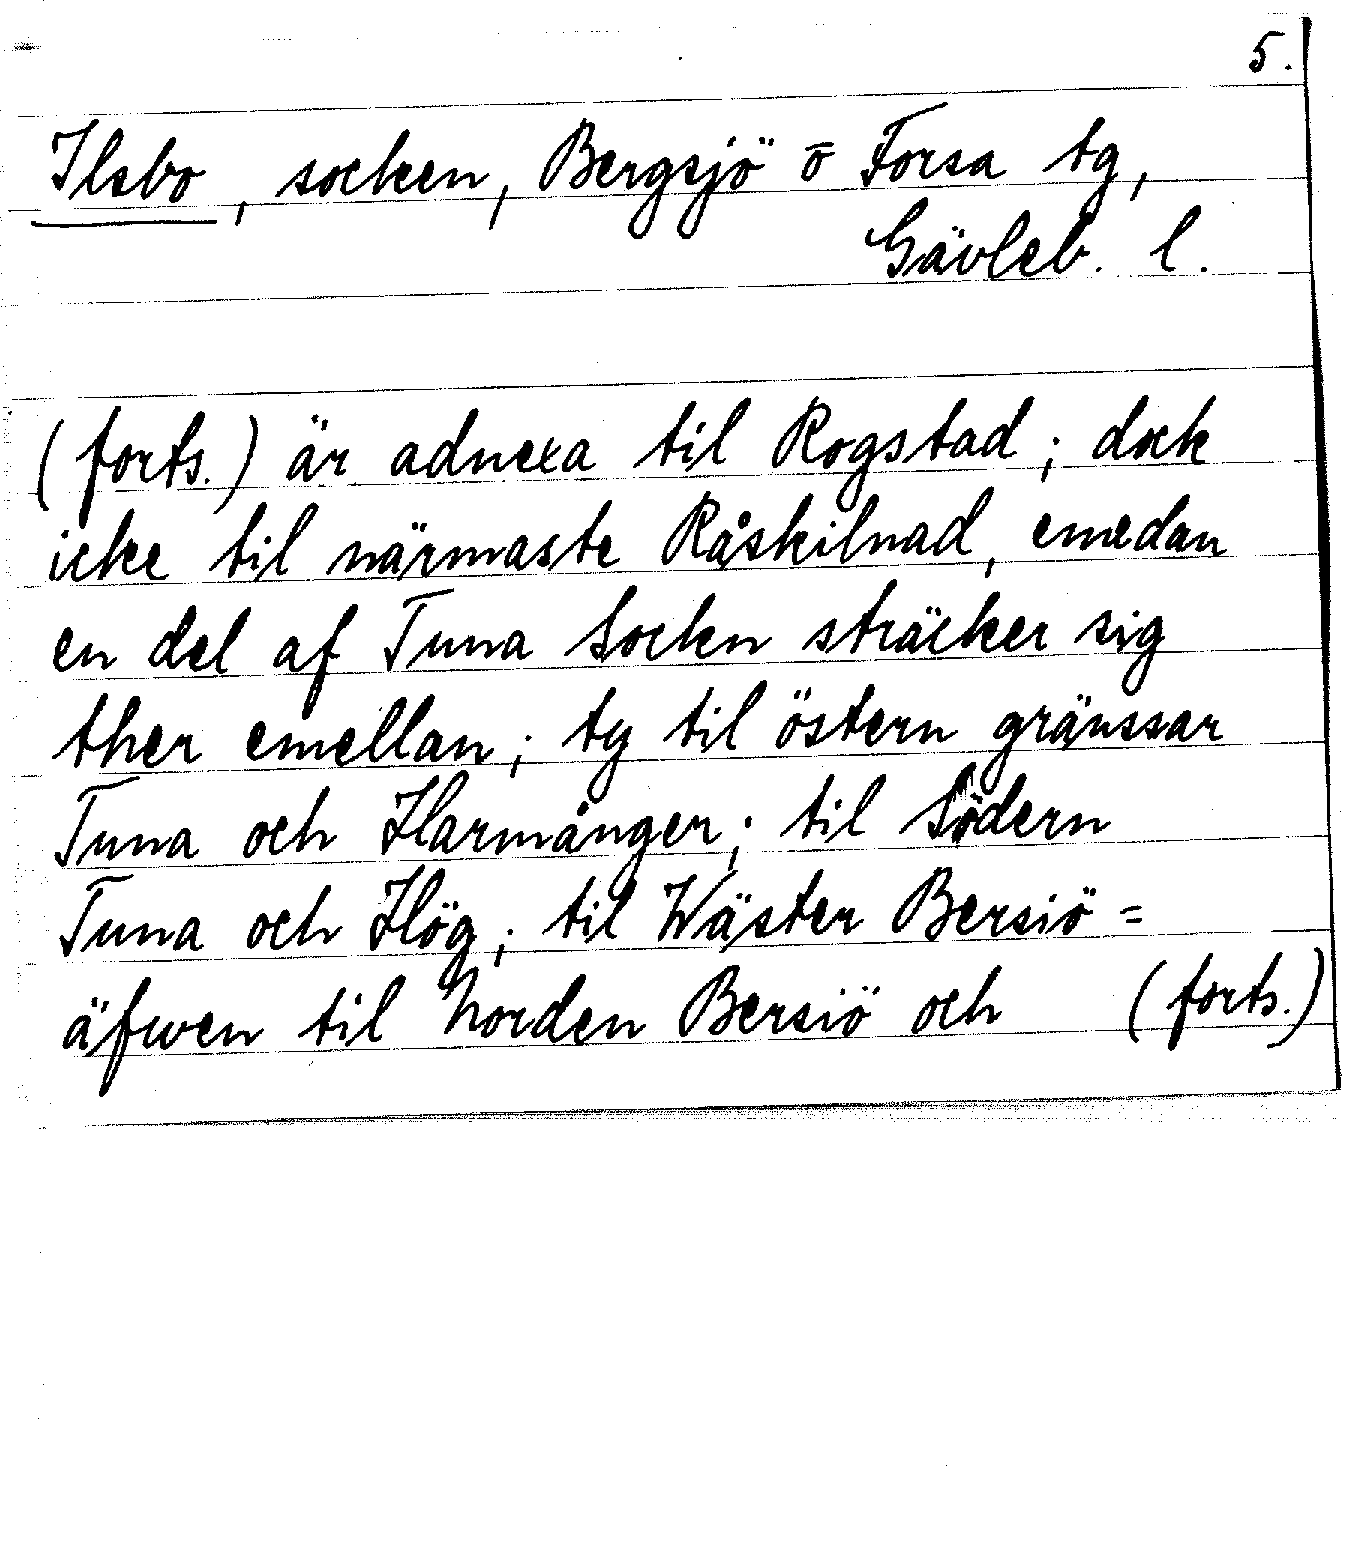 5.
Ilsbo, socken, Bergsjö o Forsa tg,
Gävleb. l.
(forts.) är adnexa til Rogstad; dock
icke til närmaste Råskilnad, emedan
en del af Tuna Sockn sträcker sig
ther emellan; ty til östern gränssar
Tuna och Harmånger; til Södern
Tuna och Hög; til Wäster Bersiö =
äfwen til Norden Bersiö och (forts.)